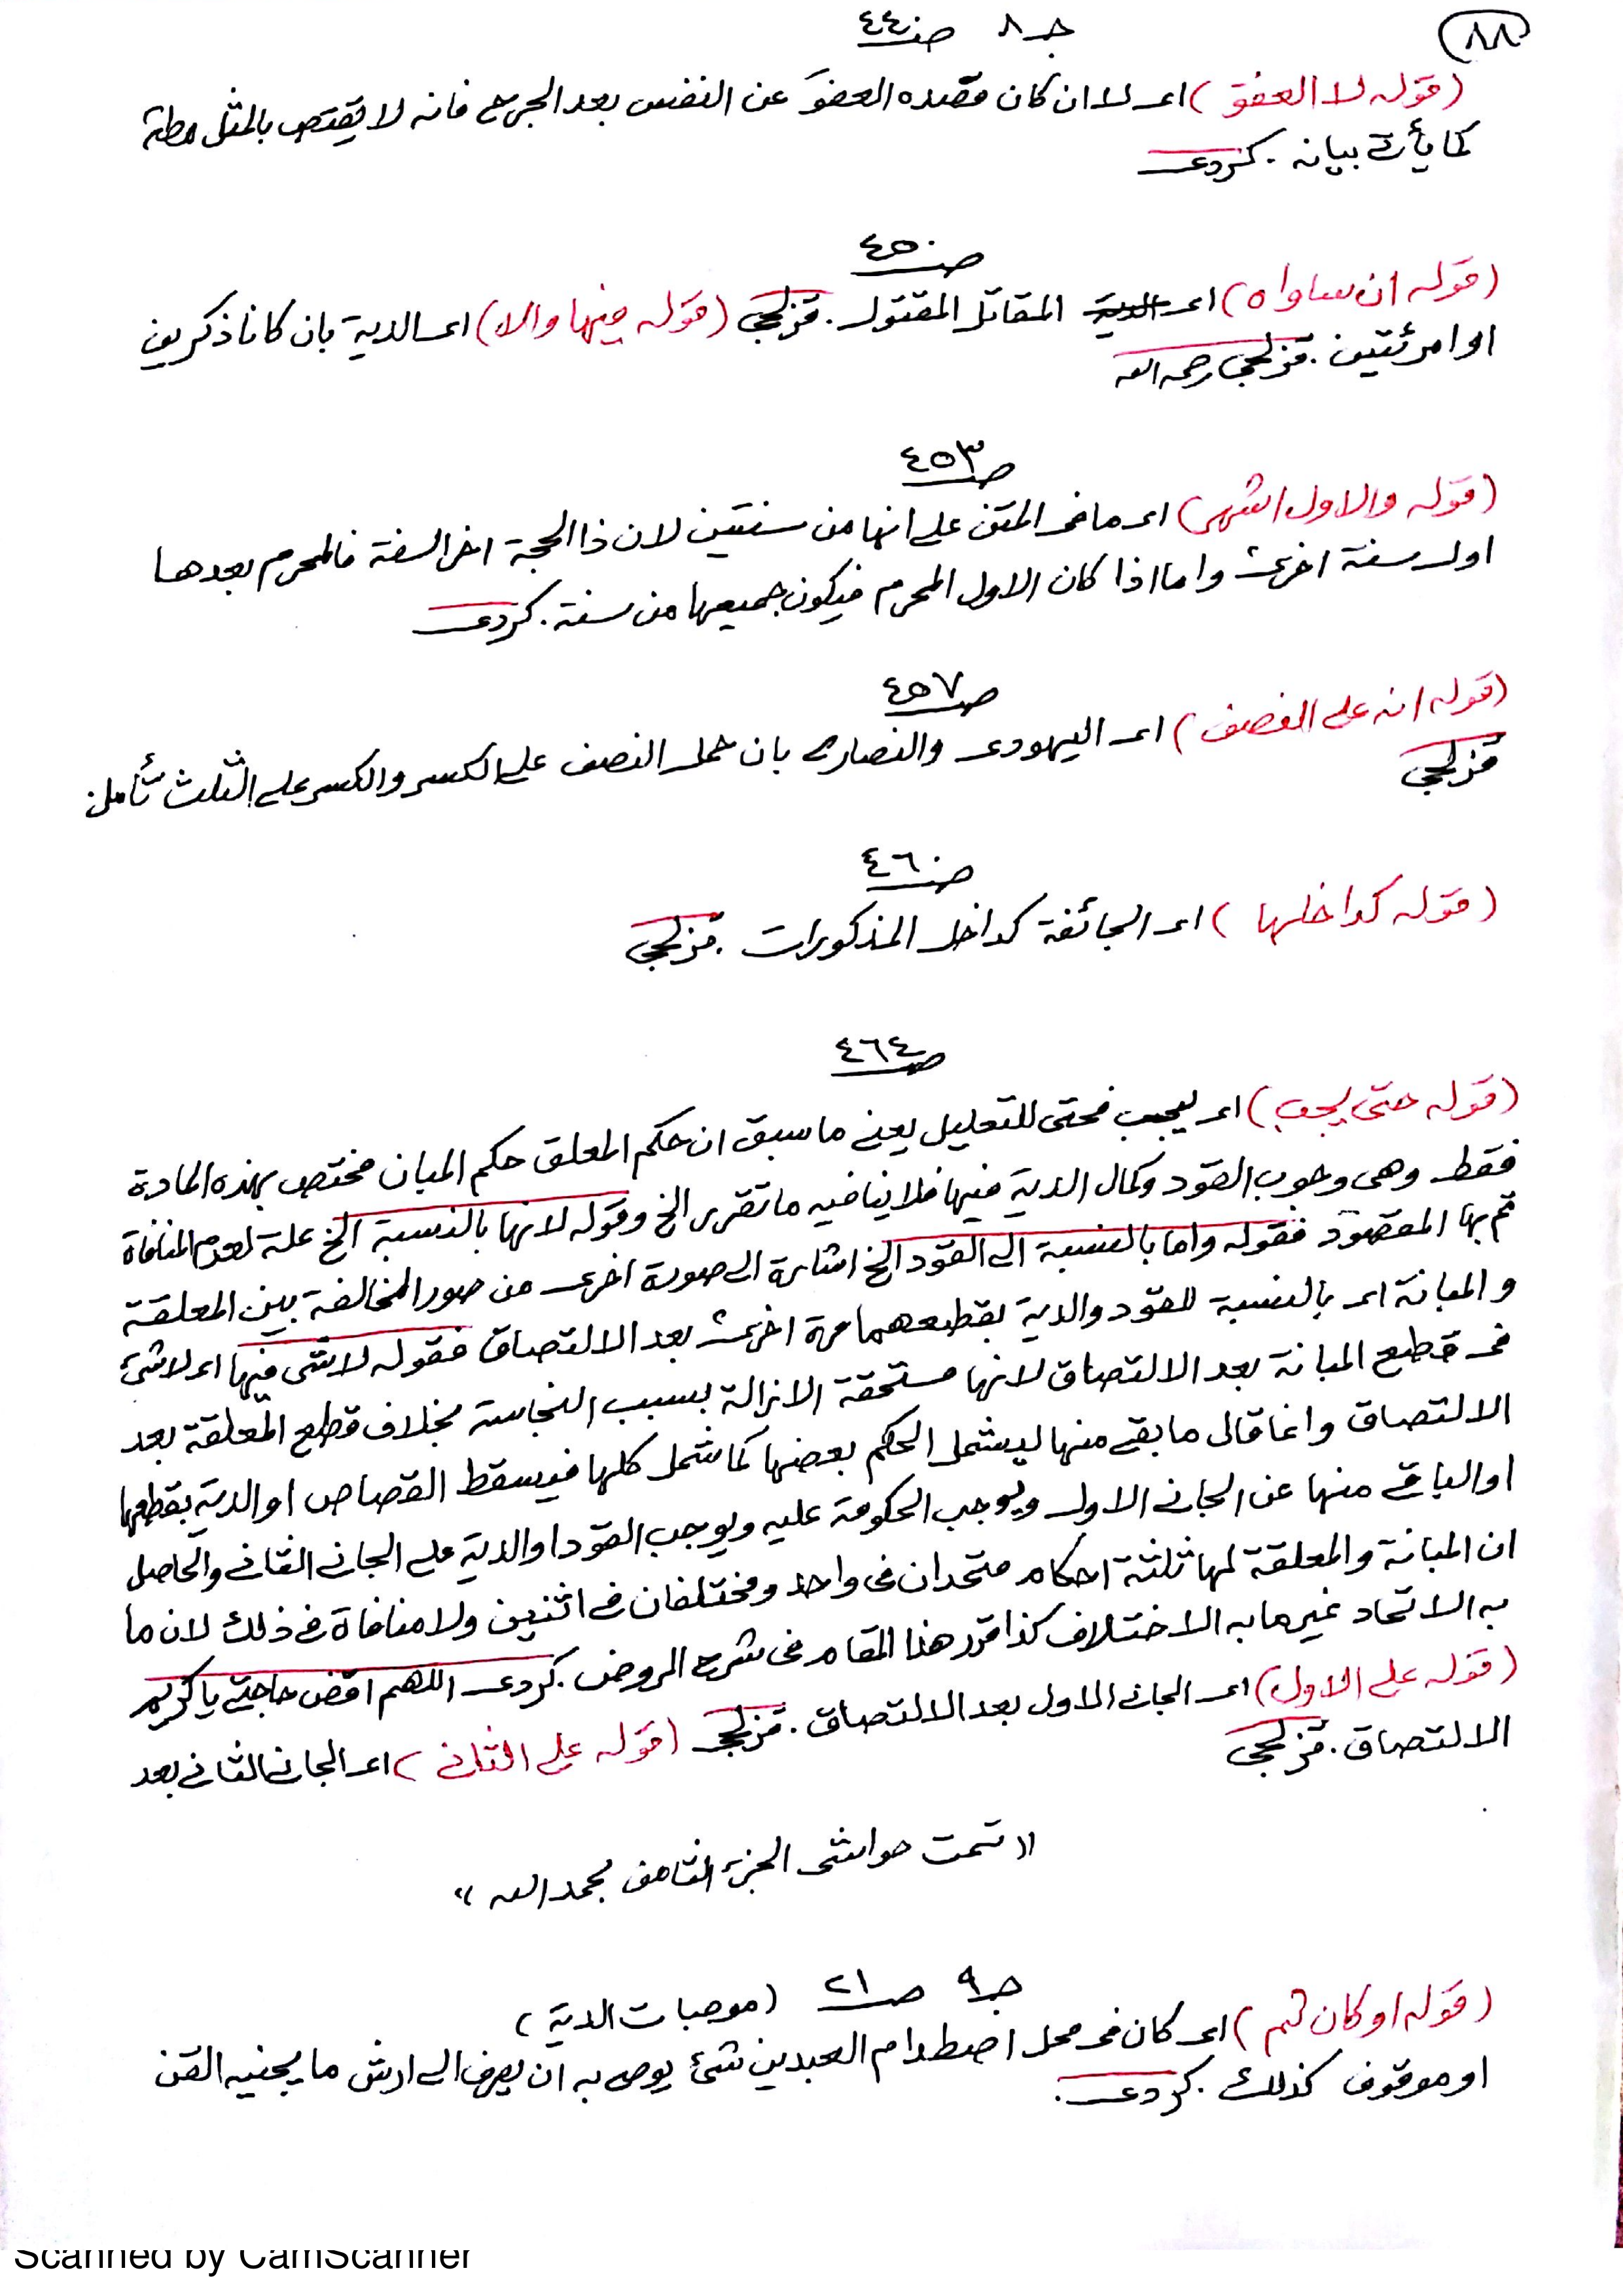 ٨٨
جـ ٨ صـ ٤٤٠
(قوله لا العفو) اى لا ان كان قصده العفوَ عن النفس بعد الجرح فانه لا يقتص بالمثل مطلقا
كما يأتى بيانه . كردى
صـ ٤٥٠
(قوله ان ساواه) اى المقاتل المقتول . قزلجى (قوله فيها والا) اى الدية بان كانا ذكرين
او امرئتين . قزلجى رحمه الله
صـ ٤٥٣
(قوله والاول اشهر) اى ما فى المتن على انها من سنتين لان ذا الحجة اخر السنة فالمحرم بعدها
اول سنة اخرى واما اذا كان الاول المحرم فيكون جميعها من سنة . كردى
صـ ٤٥٧
(قوله انه على النصف) اى اليهودى والنصارى بان حمل النصف على الكسر والكسر على الثلث تأمل
قزلجى
صـ ٤٦٠
(قوله كداخلها) اى الجائفة كداخل المذكورات . قزلجى
صـ ٤٦٤
(قوله حتى يجب) اى ليجب فحتى للتعليل يعنى ما سبق ان حكم المعلق حكم المبان مختص بهذه المادة
فقط وهى وجوب القود وكمال الدية فيها فلا ينافيه ما تقرر الخ وقوله لانها بالنسبة الخ علة لعدم المنافاة
تم بها المقصود فقوله واما بالنسبة الى القود الخ اشارة الى صورة اخرى من صور المخالفة بين المعلقة
والمبانة اى بالنسبة للقود والدية بقطعهما مرة اخرى بعد الالتصاق فقوله لا شى فيها اى لا شئ
فى قطع المبانة بعد الالتصاق لانها مستحقة الازالة بسبب النجاسة بخلاف قطع المعلقة بعد
الالتصاق وانما قال ما بقى منها ليشمل الحكم بعضها كما شمل كلها فيسقط القصاص او الدية بقطعها
او الباقى منها عن الجانى الاول ويوجب الحكومة عليه ويوجب القود او الدية على الجانى الثانى والحاصل
ان المبانة والمعلقة لها ثلثة احكام متحدان فى واحد ومختلفان فى اثنين ولا منافاة فى ذلك لان ما
به الاتحاد غير ما به الاختلاف كذا قرر هذا المقام فى شرح الروض . كردى اللهم اقض حاجتى يا كريم
(قوله على الاول) اى الجانى الاول بعد الالتصاق . قزلجى (قوله على الثانى) اى الجانى الثانى بعد
الالتصاق . قزلجى
«تمت حواشى الجزء الثامن بحمد الله»
جـ ٩ صـ ٢١ (موجبات الدية)
(قوله او كان ثم) اى كان فى محل اصطدام العبدين شئ يوصى به ان يصرف الى ارش ما يجنيه القن
او موقوف كذلك . كردى .
Scanned by CamScanner